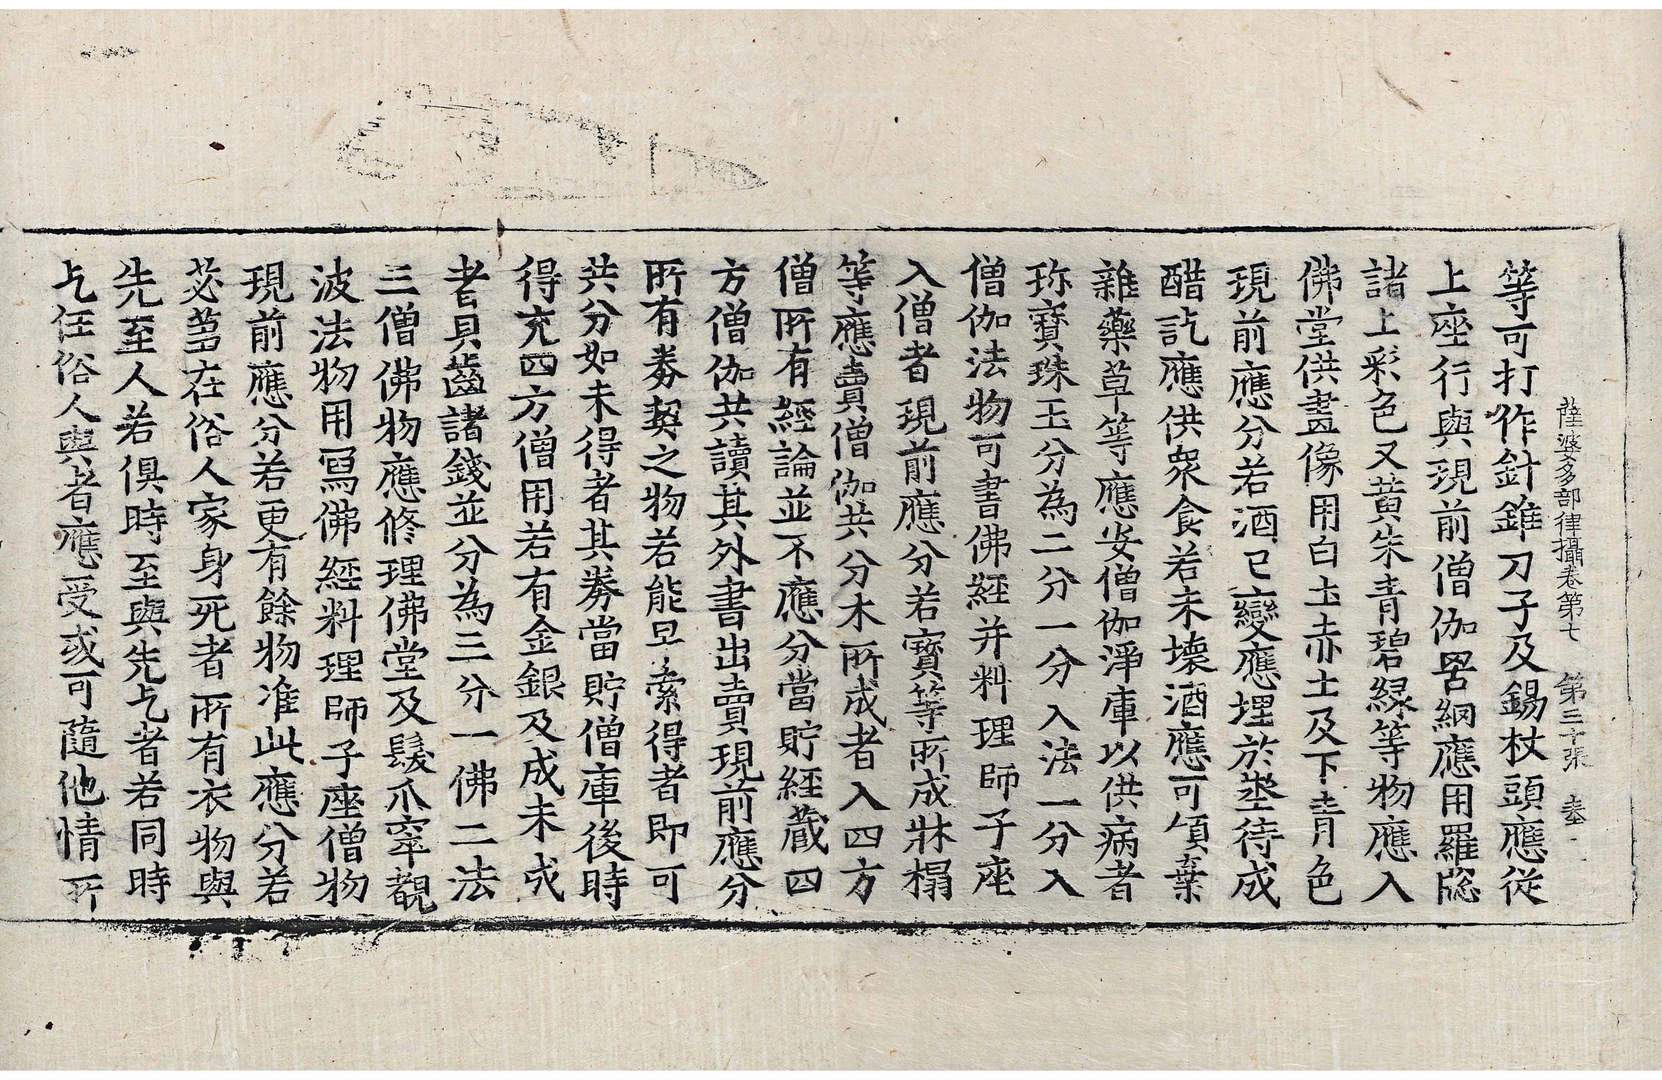 薩婆多部律攝卷第七　第三十張
等可打作針錐刀子及錫杖頭應從
上座行與現前僧伽罟網應用羅䆫
諸上彩色又黃朱青碧綠等物應入
佛堂供畫像用白土赤土及下青色
現前應分若酒已變應埋於埊待成
醋訖應供衆食若未壞酒應可傾棄
雜藥草等應安僧伽淨庫以供病者
珎寶珠玉分為二分一分入法一分入
僧伽法物可書佛經并料理師子座
入僧者現前應分若寶等所成牀榻
等應賣僧伽共分木所成者入四方
僧所有經論並不應分當貯經藏四
方僧伽共讀其外書出賣現前應分
所有券契之物若能早索得者即可
共分如未得者其券當貯僧庫後時
得充四方僧用若有金銀及成未成
者貝齒諸錢並分為三分一佛二法
三僧佛物應修理佛堂及髮爪窣覩
波法物用寫佛經料理師子座僧物
現前應分若更有餘物准此應分若
苾芻在俗人家身死者所有衣物與
先至人若俱時至與先乞者若同時
乞任俗人與者應受或可隨他情所